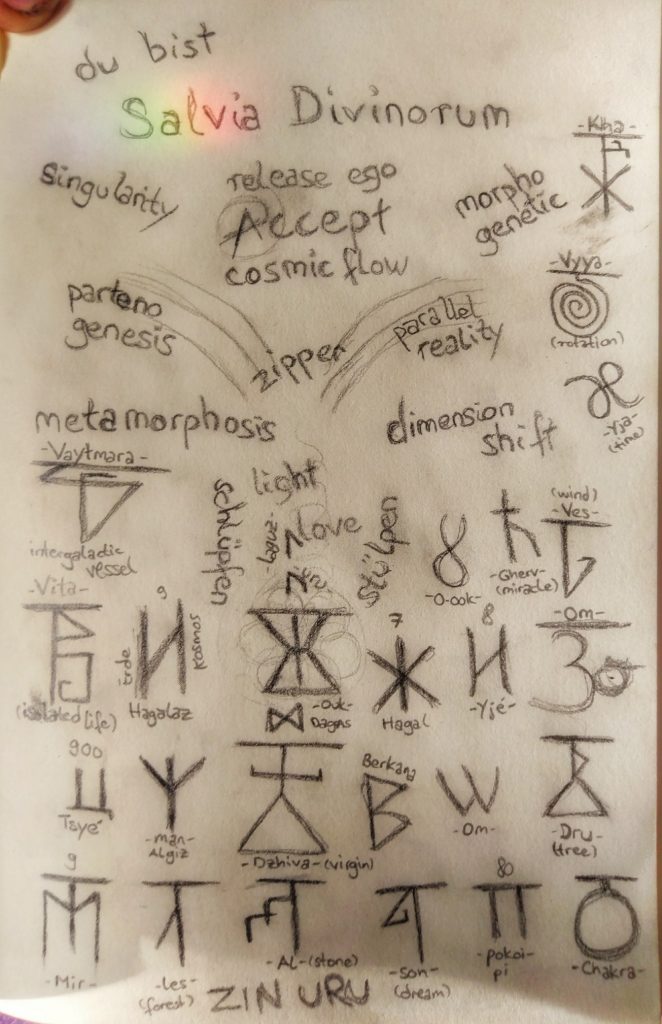 du bist
Salvia Divinorum
-Kha-
singularity
release ego
Accept
cosmic flow
morpho
genetic
-Vyya-
(rotation)
parteno
genesis
zipper
parallel
reality
-Yja-
(time)
metamorphosis
dimension
shift
-Vaytmara-
intergaladic
vessel
schlüpfen
light
-laguz-
love
stülpen
-O-ook-
-Gherv-
(miracle)
(wind)
-Ves-
-Vita-
(isolated life)
9
Erde
kosmos
Hagalaz
-Ouk-
Dagas
7
Hagal
8
-Yjé-
-Om-
900
Tsyé
-man-
Algiz
-Dzhiva-(virgin)
Berkana
-Om-
-Dru-
(tree)
9
-Mir-
-les-
(forest)
-AL-(stone)
-son-
(dream)
80
-pokoi-
pi
-Chakra-
ZIN URU